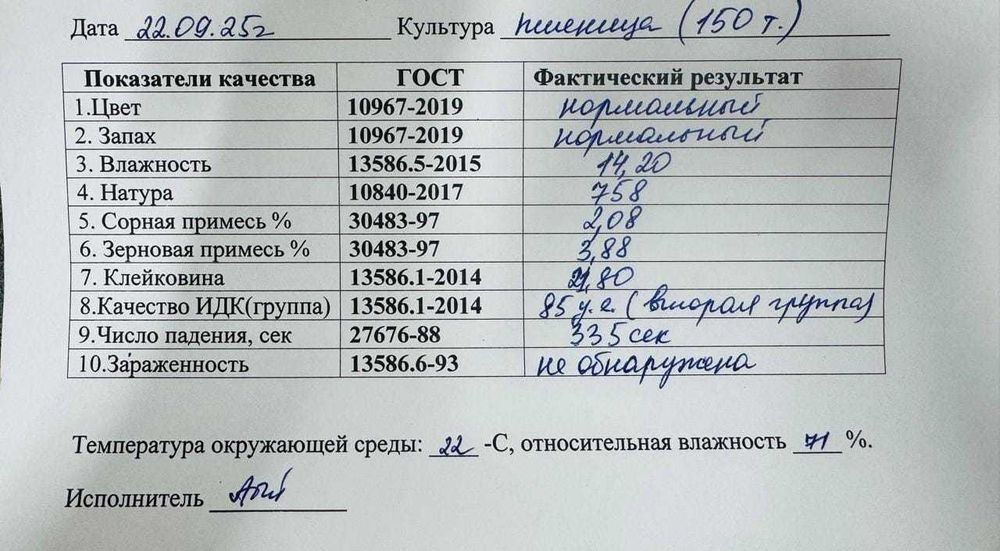 Дата 22.09.25г Культура пшеница (150 т.)
Показатели качества ГОСТ Фактический результат
1.Цвет 10967-2019 нормальный
2. Запах 10967-2019 нормальный
3. Влажность 13586.5-2015 14,20
4. Натура 10840-2017 758
5. Сорная примесь % 30483-97 2,08
6. Зерновая примесь % 30483-97 3,88
7. Клейковина 13586.1-2014 21,80
8.Качество ИДК(группа) 13586.1-2014 85 у.е. (вторая группа)
9.Число падения, сек 27676-88 335 сек
10.Зараженность 13586.6-93 не обнаружена
Температура окружающей среды: 22 -С, относительная влажность 71 %.
Исполнитель